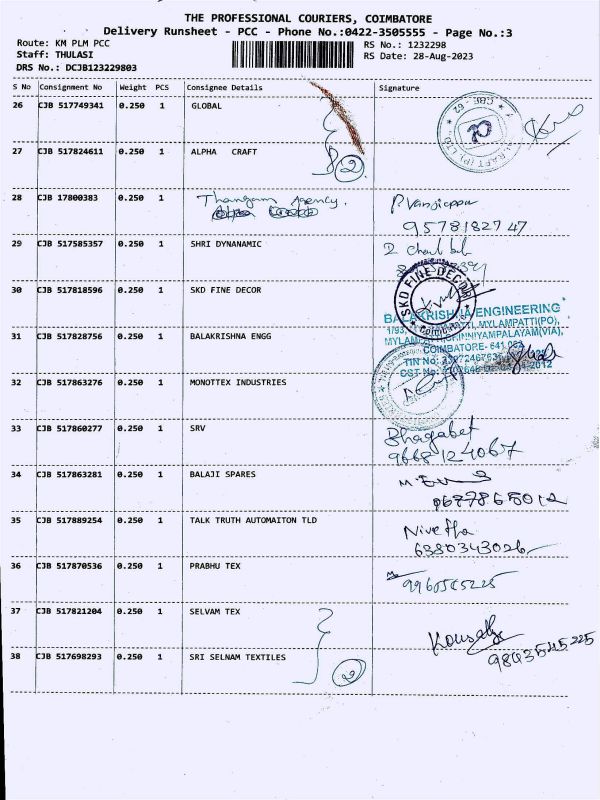 THE PROFESSIONAL COURIERS, COIMBATORE
Delivery Runsheet - PCC - Phone No.:0422-3505555 - Page No.:3
Route: KM PLM PCC
RS No.: 1232298
Staff: THULASI
RS Date: 28-Aug-2023
DRS No.: DCJB123229803
S No Consignment No Weight PCS Consignee Details Signature
26 CJB 517749341 0.250 1 GLOBAL
27 CJB 517824611 0.250 1 ALPHA CRAFT
2
28 CJB 17800383 0.250 1 Thangam Agency.
9578182747
29 CJB 517585357 0.250 1 SHRI DYNANAMIC
30 CJB 517818596 0.250 1 SKD FINE DECOR
SKD FINE DECOR
Coimbatore
BALAKRISHNA ENGINEERING
MYLAMPATTI(PO),
COIMBATORE- 641 062
TIN No:
CST No:
31 CJB 517828756 0.250 1 BALAKRISHNA ENGG
32 CJB 517863276 0.250 1 MONOTTEX INDUSTRIES
33 CJB 517860277 0.250 1 SRV Bhagabat
9668124067
34 CJB 517863281 0.250 1 BALAJI SPARES
35 CJB 517889254 0.250 1 TALK TRUTH AUTOMAITON TLD Nivetha
6380343026
36 CJB 517870536 0.250 1 PRABHU TEX
9960565225
37 CJB 517821204 0.250 1 SELVAM TEX
38 CJB 517698293 0.250 1 SRI SELNAM TEXTILES
2